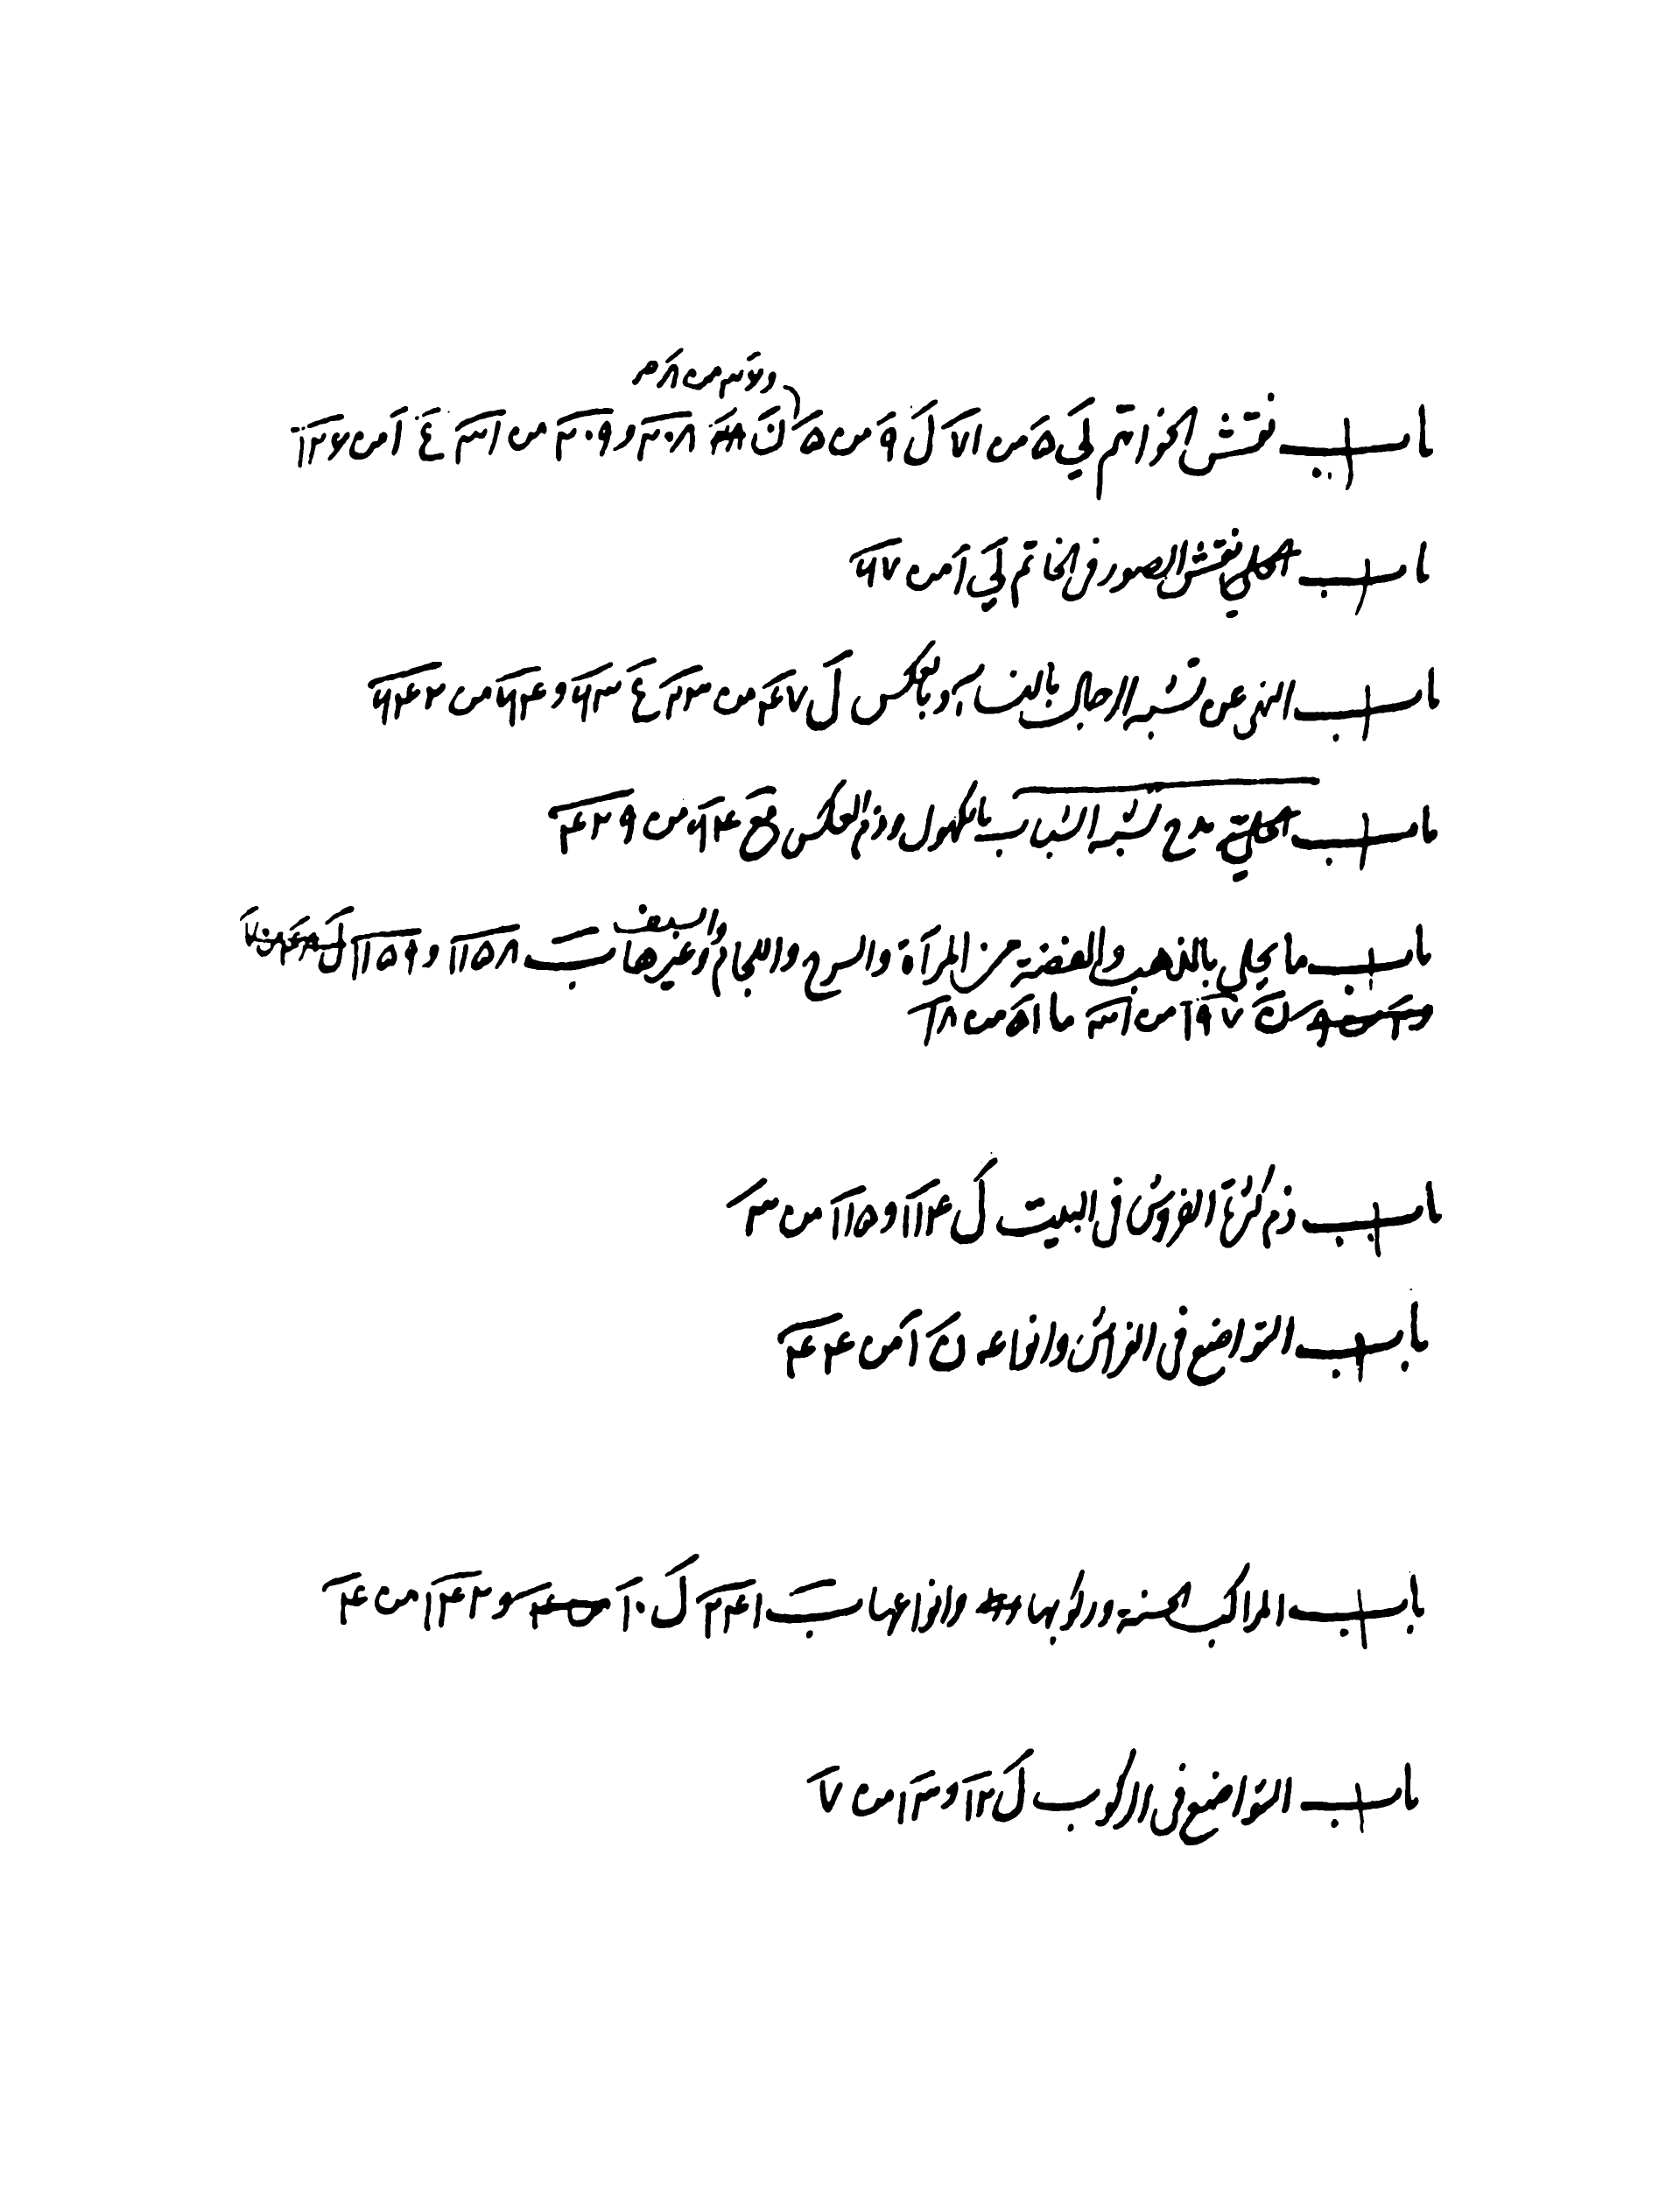 باب نقش الخواتم لي ٥ من ٧١ ل ٩ من ٥ ن ٢٠٨ و ٢٠٩ من ٣١ ع ١ من ١٢٦
باب نقش الصور في الخاتم لي ١ من ٦٧
باب النهي عن تشبه الرجال بالنساء وبالعكس ل ٤٧ من ٢٣ ع ٦٣ و ٦٤ من ٦٤٢
باب مدح تشبه الشباب بالكهول وذم العكس مع ٦٤ من ٤٢٩
والسيف
باب ما يحلى بالذهب والفضة من المرآة والسرج واللجام وغيرها ب ١١٥٨ و ١١٥٩ ل
ن ١٩٧ من ٣١ ما ٥١ من ٦٨
باب ذم كثرة الفروش في البيت ل ١١٤ و ١١٥ من ٣
باب التواضع في الفراش وانواعه ن ١ من ٤٤
باب المراكب الحسنة وركوبها وانواعها ب ٢٤١ ل ١٠ و ١٤٢ من ٤
باب التواضع في الركوب ل ١٢ و ١٣ من ٧